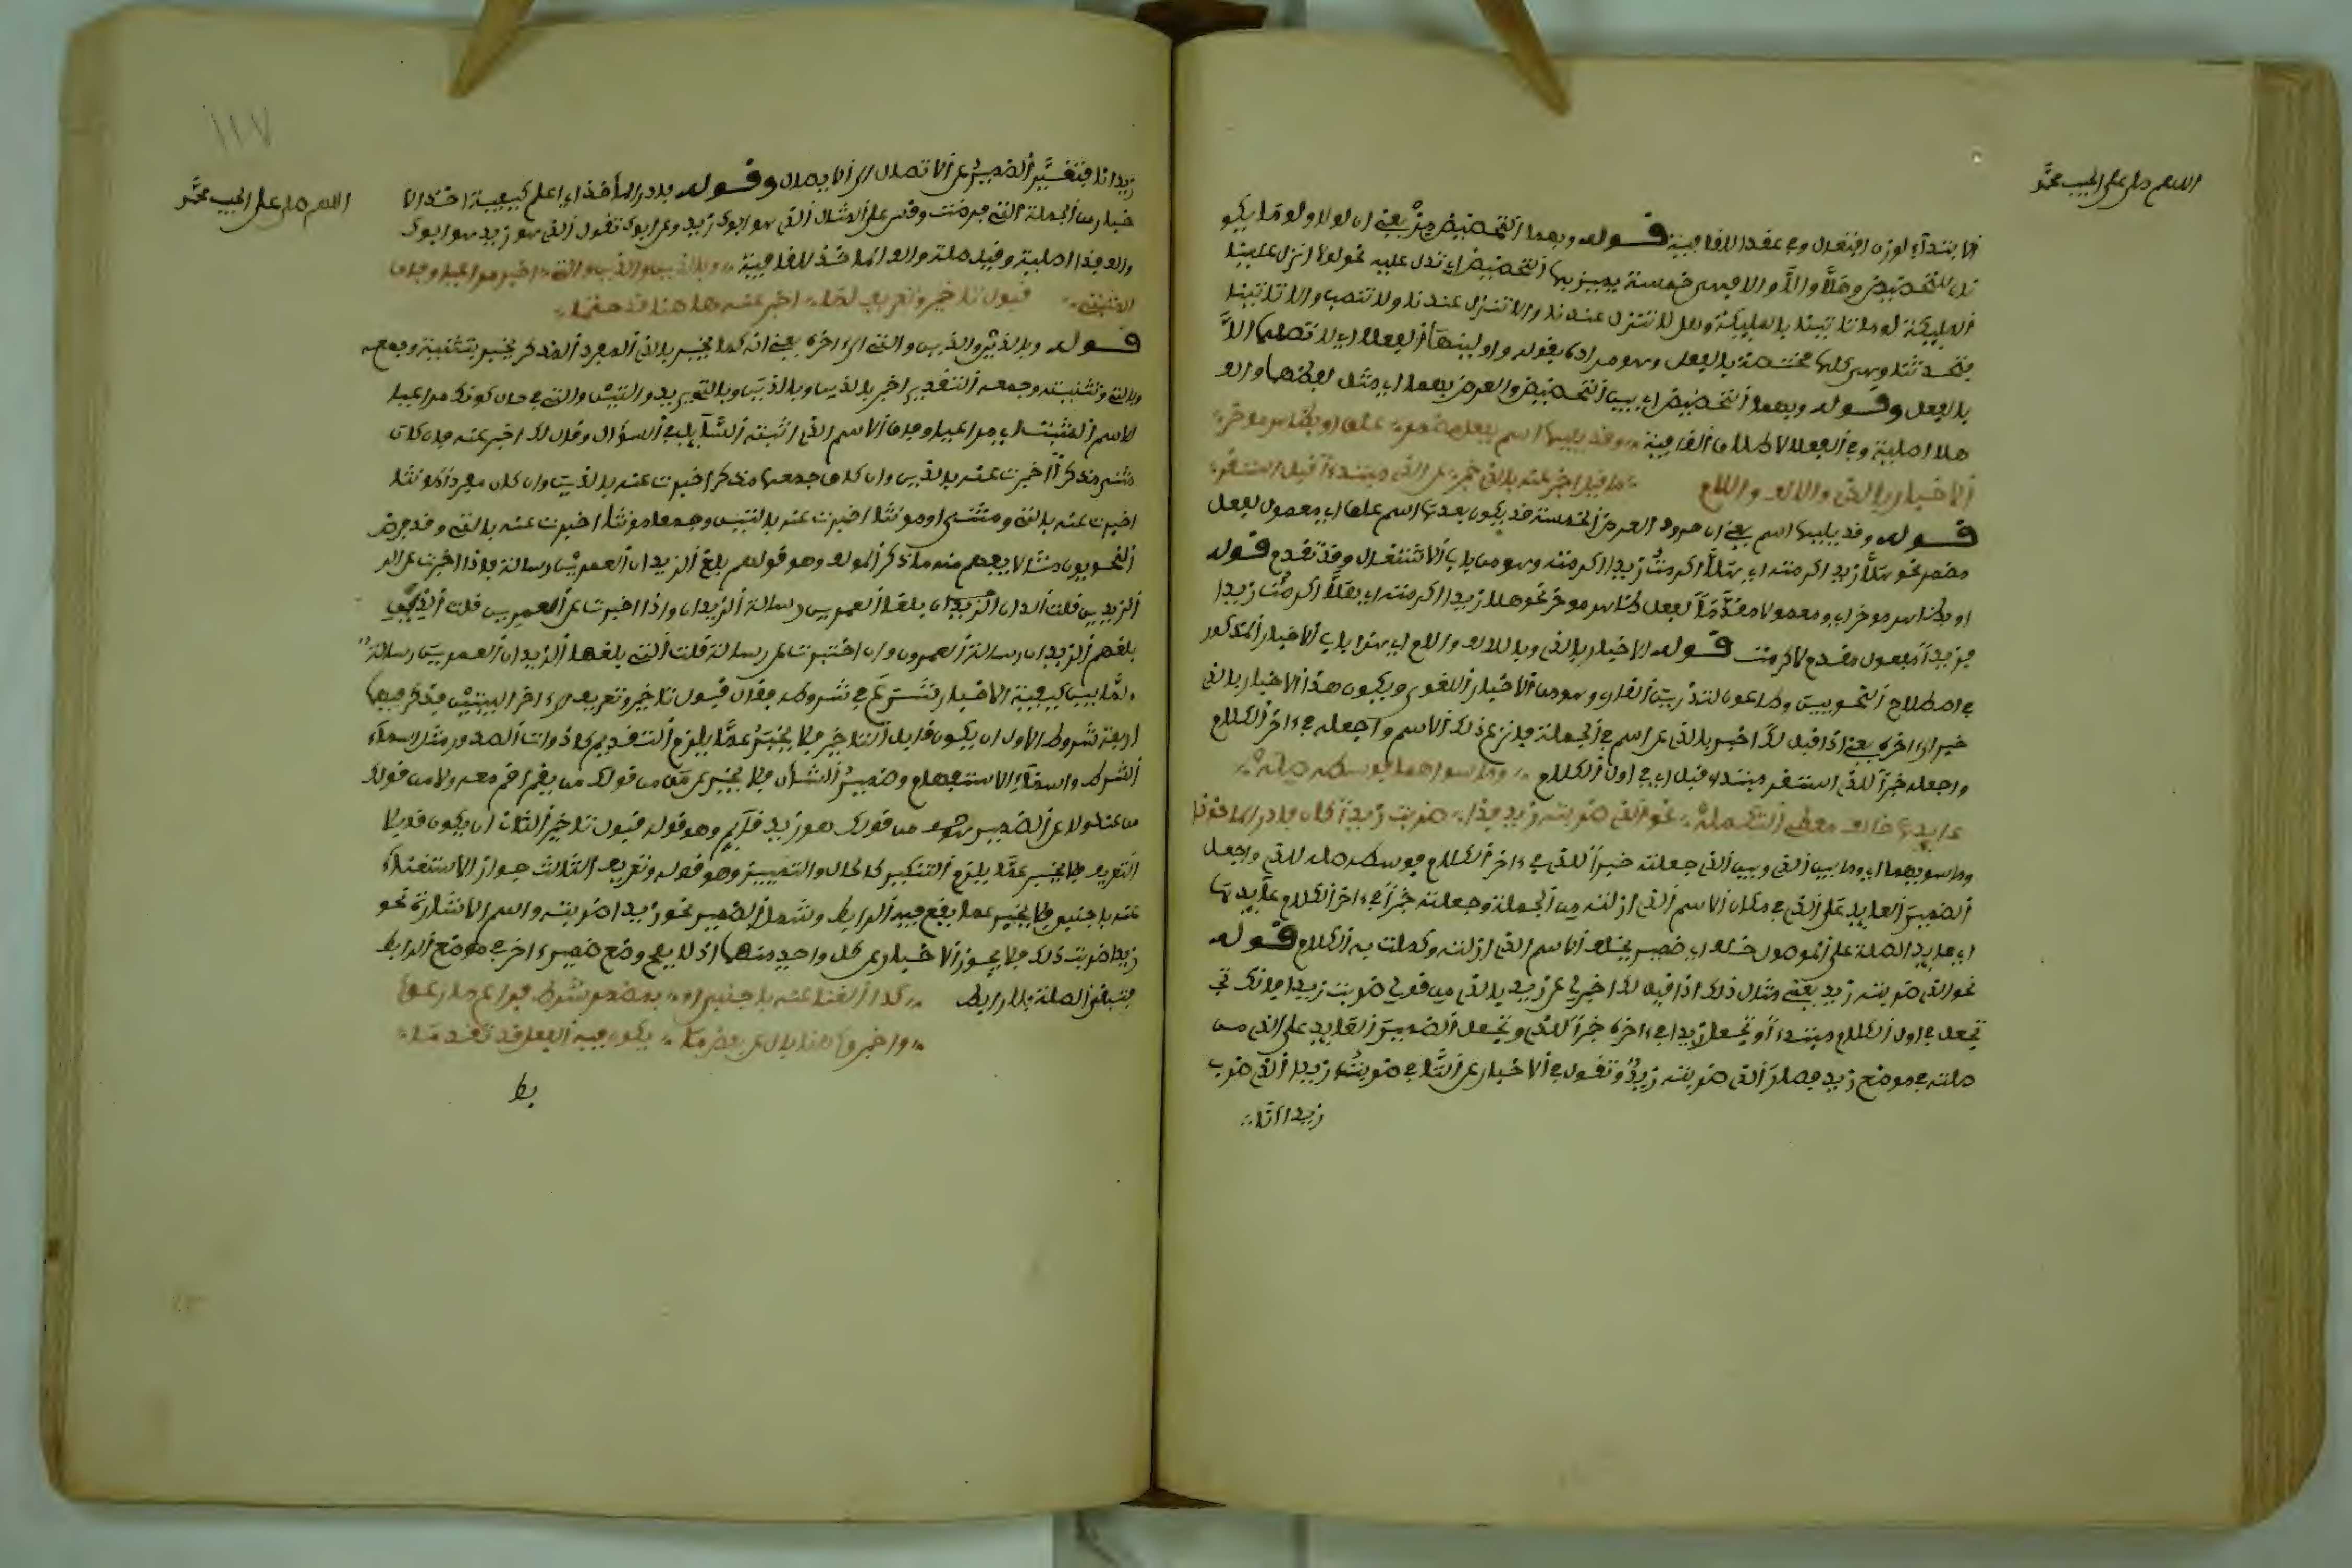 اللهم صل على الحبيب محمد
الابتداء اوزن اقتفدن وفي عقدا للقافية قوله وبهما التحضيض مز يعني ان لولا ولوما يكو
نان للتحضيض وهلا والا والا فهي خمسة يميز بها التحضيض اي تدل عليه نحو لولا انزل علينا
الملائكة لو ما تاتينا بالملائكة وهلا تنزل عندنا والا تنزل عندنا ولا تنصب والا تاتينا
فتحدثنا وهي كلها مختصة بالفعل وهو مراده بقوله واولينها الفعلا اي لا تصلها الا
بالفعل وقوله وبهما التحضيض اي بين التحضيض والعرض بهما اي مثل بعضها والف
هلا اصلية وفي الفعلا لاطلاق القافية وقد يليها اسم بفعل مضمر علق او بظاهر موخر
الاخبار بالذي والالف واللام ما قيل اخبر عنه بالذي خبر عن الذي مبتدءا قبل استقر
قوله وقد يليها اسم يعني ان حروف العرض الخمسة قد يكون بعدها اسم علق اي معمول لفعل
مضمر نحو هلا زيدا اكرمته اي هلا اكرمت زيدا اكرمته وهو من باب الاشتغال وقد تقدم قوله
او بظاهر موخر اي ومعمولا مقدما لفعل ظاهر موخر نحو هلا زيدا اكرمته اي هلا اكرمت زيدا
فزيدا مفعول مقدم لاكرمت قوله الاخبار بالذي وبالالف واللام اي هذا باب الاخبار المذكور
في اصطلاح النحويين وضاعون لتدريب القارئ وهو من الاخبار اللغوي ويكون هذا الاخبار بالذي
خبر الى اخره يعني اذا قيل لك اخبر بالذي عن اسم في الجملة فانزع ذلك الاسم واجعله في ءاخر الكلام
واجعله خبرا للذي استقر مبتدءا قبل اي في اول الكلام وما سواهما فوسطه صلة
عايدها خلف معطي التكملة نحو الذي ضربته زيد فذا ضربت زيدا كان فادر الماخذا
وما سويهما اي وما بين الذي وبين الذي جعلته خبرا للذي في ءاخر الكلام فوسطه صلة للذي واجعل
الضمير العايد على الذي في مكان الاسم الذي ازلته من الجملة وجعلته خبرا في ءاخر الكلام عايدها
اي عايد الصلة على الموصول خلف اي ضمير يخلف الاسم الذي ازلته وكملت به الكلام قوله
نحو الذي ضربته زيد يعني مثال ذلك اذا قيل لك اخبر لي عن زيد بالذي من قولي ضربت زيدا فانك تجـ
تجعل في اول الكلام مبتدءا وتجعل زيدا في ءاخره خبرا للذي وتجعل الضمير العايد على الذي من
صلته في موضع زيد فصار الذي ضربته زيد وتقول في الاخبار عن التاء في ضربت زيدا الذي ضرب
زيدا انا
١١٧
اللهم صل على الحبيب محمد
زيدا انا فتغير الضمير عن الاتصال الى الانفصال وقوله فادر الماخذا اي اعلم كيفية اخذ الا
خبار من الجملة التي فرضت وقس على المثال الذي هو ابوك زيد وعن ابوك تقول الذي هو زيد هو ابوك
والف فذا اصلية وفيه صلة والف الماخذ للقافية وباللذين والذين والتي اخبر مراعيا وفاق
المثبت قبول تاخير وتعريف لما اخبر عنه هاهنا قد حتما
قوله وباللذين والذين والتي الى ءاخره يعني انه كما يخبر بالذي المفرد المذكر يخبر بتثنية وجمعه
وبالتي وتثنيته وجمعه التقدير اخبر باللذين وبالذين وبالتي وبد والتين والتي في حال كونك مراعيا
لاسم المثبت اي مراعيا وفاق الاسم الذي اثبته السايل في السؤال وقال لك اخبر عنه فان كان
مثنى مذكرا اخبرت عنه باللذين وان كان جمعا مذكرا اخبرت عنه بالذين وان كان مفردا مؤنثا
اخبرت عنه بالتي ومثنى او مؤنثا اخبرت عنه باللتين وجمعا مونثا اخبرت عنه بالتي وقد فرض
النحويون مثالا يفهم منه ما ذكر المولف وهو قولهم بلغ الزيدان العمرين رسالة فاذا اخبرت عن الـ
الزيدين قلت اللذان بلغا العمرين رسالة الزيدان واذا اخبرت عن العمرين قلت الذين
بلغهم الزيدان رسالة العمرون وان اخبرت عن رسالة قلت التي بلغها الزيدان العمرين رسالة
ولما بين كيفية الاخبار شرع في شروطه فقال قبول تاخير وتعريف الى ءاخر البيتين فذكر فيهما
اربعة شروط الاول ان يكون قابل التاخير فلا يخبر عما يلزم التقديم كاذوات الصدور مثل اسماء
الشرط واسماء الاستفهام وضمير الشان فلا يخبر عن من من قولك من يقم اقم معه ولا من قولك
من عندك ولا عن الضمير هو من قولك هو زيد قايم وهو قوله قبول تاخير الثان ان يكون قابلا
التعريف فلا يخبر عما يلزم التنكير كالحال والتمييز وهو قوله وتعريف الثالث جواز الاستغناء
عنه باجنبي فلا يخبر عما يقع فيه الرابط وشمل الضمير نحو زيدا ضربته واسم الاشارة نحو
زيدا ضربت ذلك فلا يجوز الاخبار عن كل واحد منهما اذ لا يصح وضع ضمير ءاخر في موضع الرابط
فتبقى الصلة بلا رابط كذا الغنا عنه باجنبي او بمضمر شرط فراع ما رعوا
واخبروا هنا بال عن بعض ما يكون فيه الفعل قد تقدما
بط